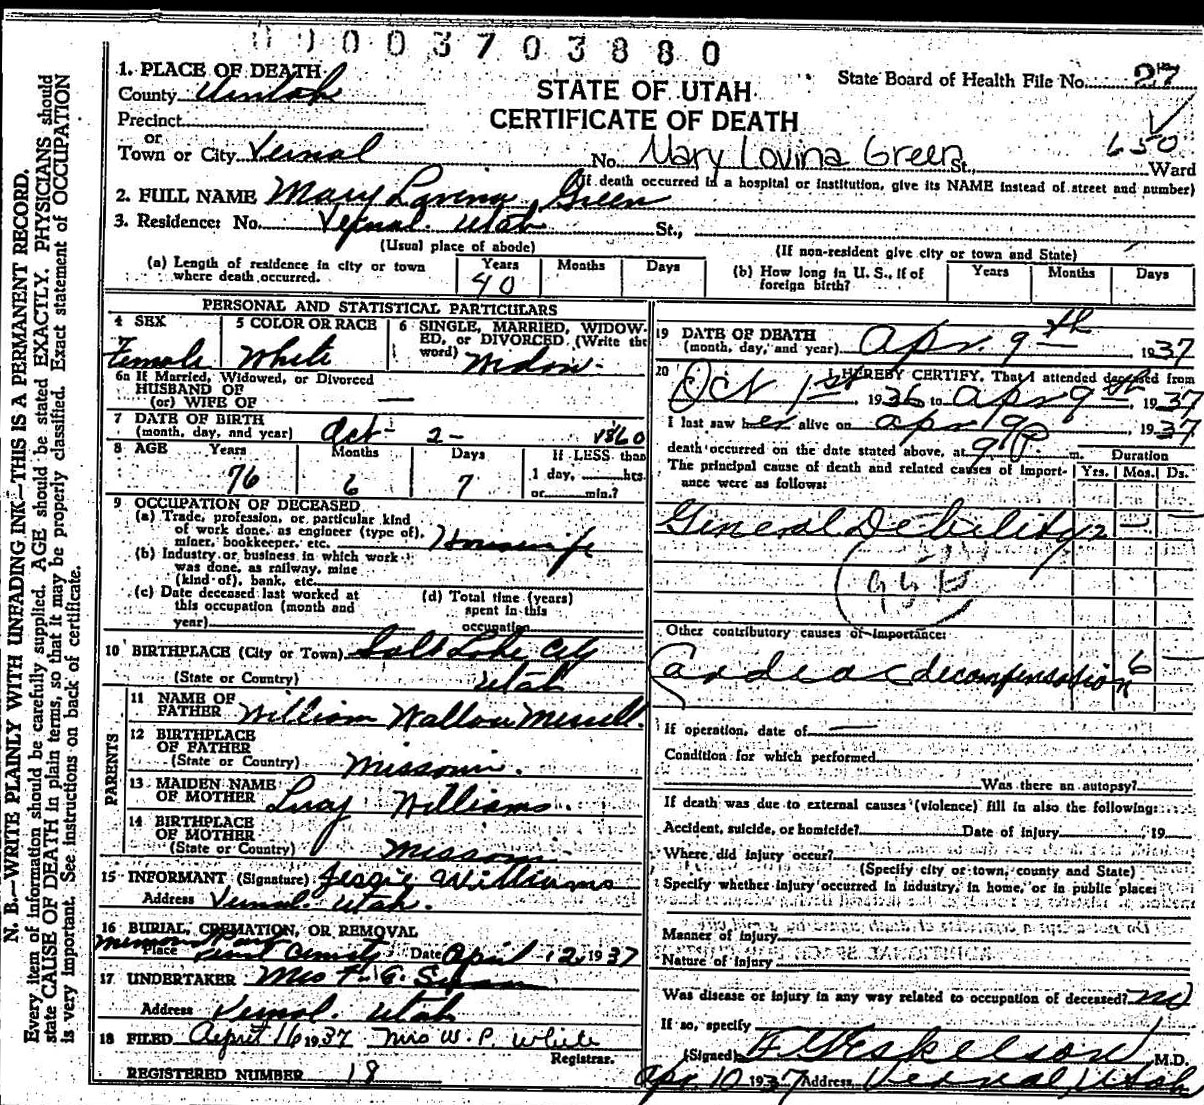 00003703880
1. PLACE OF DEATH
County Uintah
Precinct
or
Town or City Vernal
STATE OF UTAH
CERTIFICATE OF DEATH
State Board of Health File No. 27
650
No. Mary Lovina Green St., Ward
(If death occurred in a hospital or institution, give its NAME instead of street and number)
2. FULL NAME Mary Lovina Green
3. Residence: No. Vernal. Utah St.,
(Usual place of abode) (If non-resident give city or town and State)
(a) Length of residence in city or town where death occurred. Years 40 Months Days
(b) How long in U. S., if of foreign birth? Years Months Days
PERSONAL AND STATISTICAL PARTICULARS
4 SEX Female
5 COLOR OR RACE White
6 SINGLE, MARRIED, WIDOW-
ED, or DIVORCED. (Write the
word) Widow.
6a If Married, Widowed, or Divorced
HUSBAND OF
(or) WIFE OF —
7 DATE OF BIRTH
(month, day, and year) Oct - 2 - 1860
8 AGE Years Months Days If LESS than
76 6 7 1 day, hrs.
or min.?
9 OCCUPATION OF DECEASED
(a) Trade, profession, or particular kind
of work done, as engineer (type of),
miner, bookkeeper, etc. Housewife
(b) Industry or business in which work
was done, as railway, mine
(kind of), bank, etc.
(c) Date deceased last worked at
this occupation (month and
year)
(d) Total time (years)
spent in this
occupation
10 BIRTHPLACE (City or Town) Salt Lake City
(State or Country) Utah
PARENTS
11 NAME OF
FATHER William
12 BIRTHPLACE
OF FATHER
(State or Country) Missouri.
13 MAIDEN NAME
OF MOTHER Lucy Williams
14 BIRTHPLACE
OF MOTHER
(State or Country) Missouri
15 INFORMANT (Signature) Jessie Williams
Address Vernal. Utah.
16 BURIAL, CREMATION, OR REMOVAL
Place Date April 12, 1937
17 UNDERTAKER Mrs
Address Vernal. Utah
18 FILED April 16 1937 Mrs W. P. White
Registrar.
REGISTERED NUMBER 18
19 DATE OF DEATH
(month, day, and year) Apr. 9th 1937
20 I HEREBY CERTIFY, That I attended deceased from
Oct 1st, 1936 to Apr 9th, 1937
I last saw her alive on Apr 9, 1937
death occurred on the date stated above, at 9 P. m. Duration
The principal cause of death and related causes of import-
ance were as follows: Yrs. Mos. Ds.
General Debility 2 — —
Other contributory causes of importance:
decompensation 6 —
If operation, date of —
Condition for which performed
Was there an autopsy?
If death was due to external causes (violence) fill in also the following:
Accident, suicide, or homicide? Date of injury , 19
Where did injury occur?
(Specify city or town, county and State)
Specify whether injury occurred in industry, in home, or in public place:
Manner of injury
Nature of injury
Was disease or injury in any way related to occupation of deceased? No
If so, specify
(Signed) Eskelson M.D.
Apr 10 1937 Address Vernal, Utah
N. B.—WRITE PLAINLY WITH UNFADING INK—THIS IS A PERMANENT RECORD.
Every item of information should be carefully supplied. AGE should be stated EXACTLY. PHYSICIANS should
state CAUSE OF DEATH in plain terms, so that it may be properly classified. Exact statement of OCCUPATION
is very important. See instructions on back of certificate.